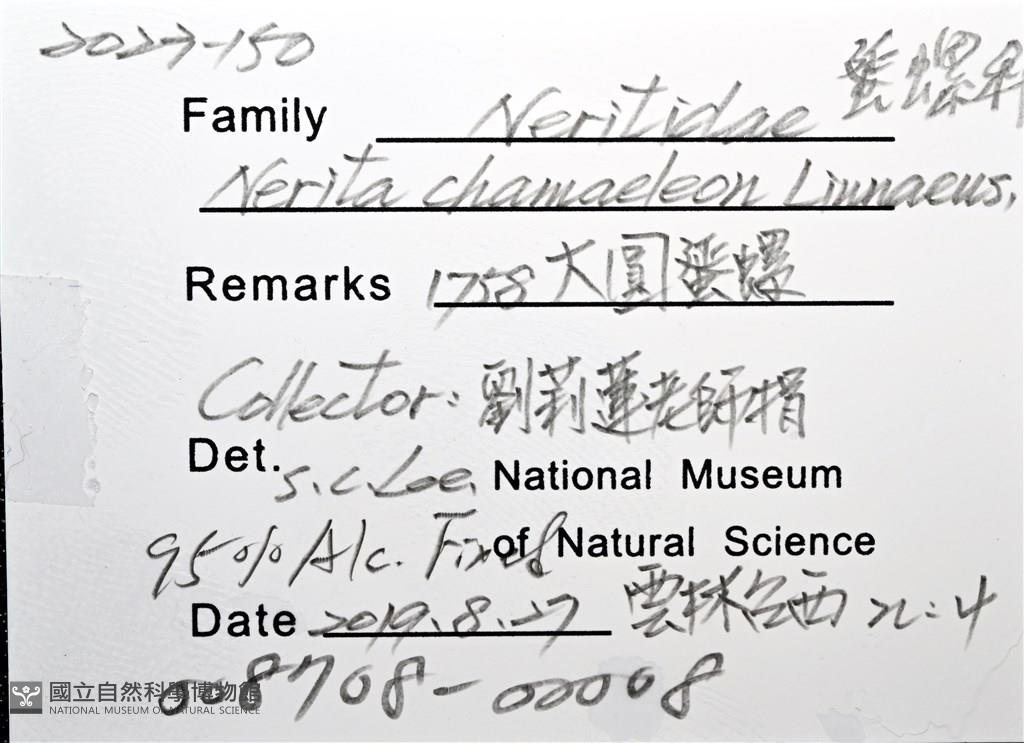 2023-150
Family Neritidae 蜑螺科
Nerita chamaeleon Linnaeus,
Remarks 1758 大圓蜑螺
Collector: 劉莉蓮老師捐
Det. S.C. Lee. National Museum
95% Alc. Fixed of Natural Science
Date 2019.8.27 雲林台西 n:4
008708-00008
國立自然科學博物館
NATIONAL MUSEUM OF NATURAL SCIENCE